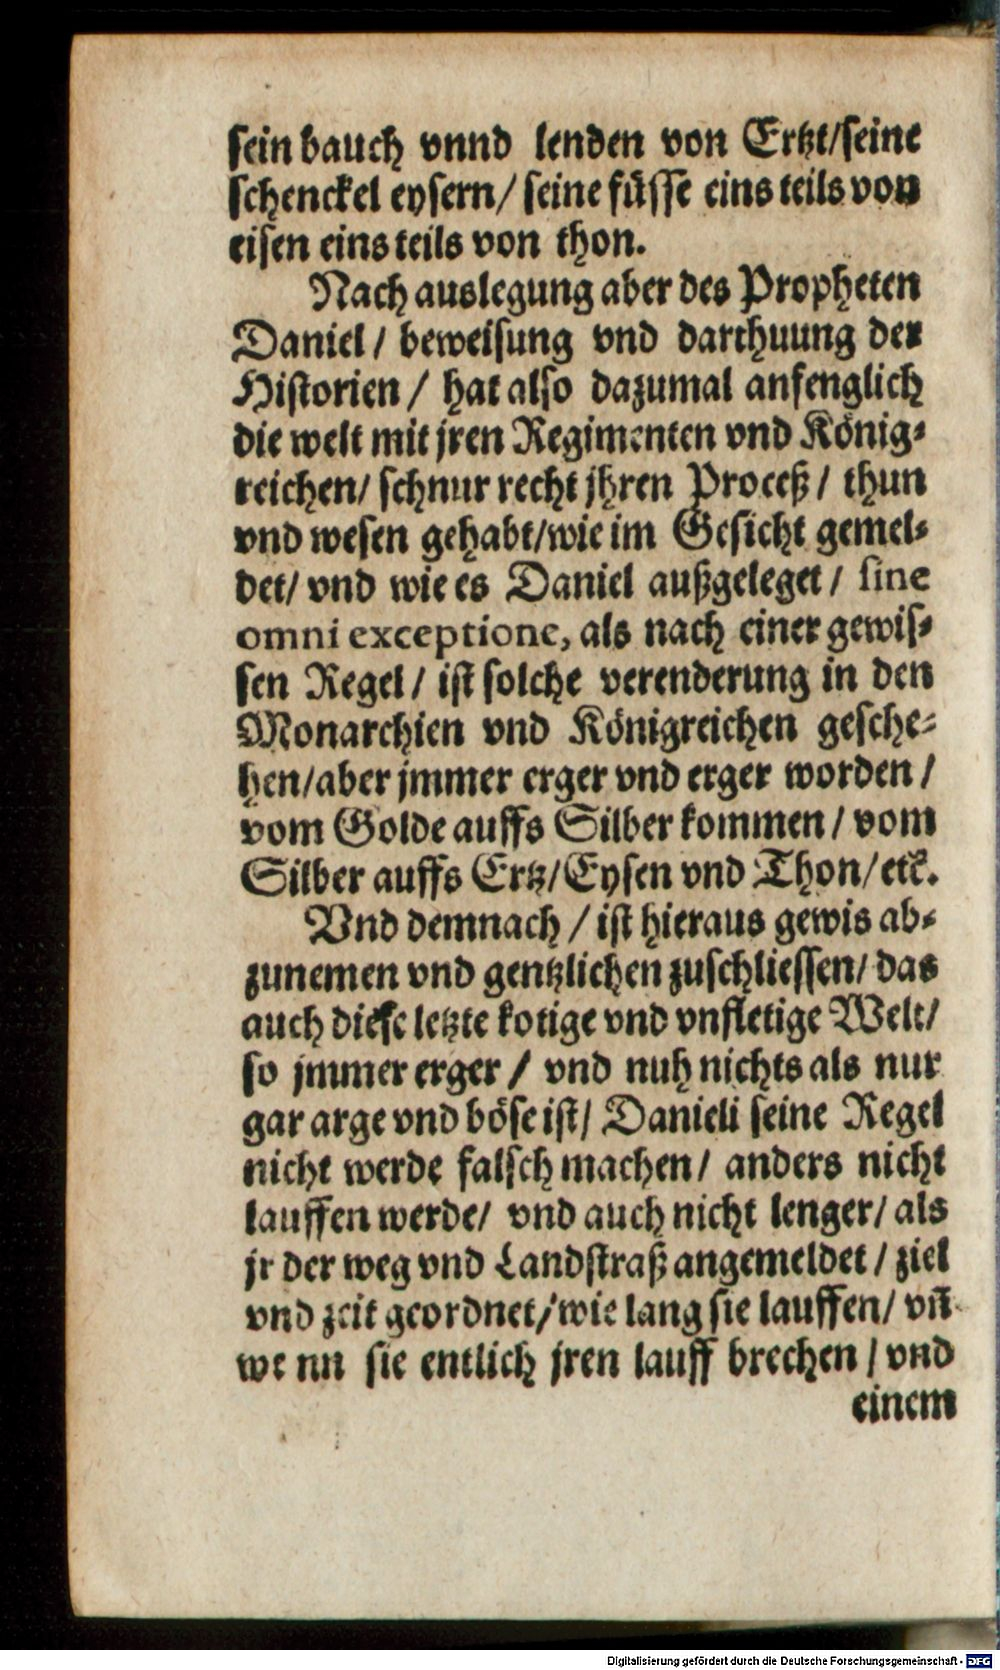 sein bauch vnnd lenden von Ertzt/seine
schenckel eysern/ seine füsse eins teils von
eisen eins teils von thon.
Nach auslegung aber des Propheten
Daniel / beweisung vnd darthuung der
Historien / hat also dazumal anfenglich
die welt mit jren Regimenten vnd König⸗
reichen/ schnur recht jhren Proceß / thun
vnd wesen gehabt/wie im Gesicht gemel⸗
det/ vnd wie es Daniel außgeleget / sine
omni exceptione, als nach einer gewis⸗
sen Regel / ist solche verenderung in den
Monarchien vnd Königreichen gesche⸗
hen/aber jmmer erger vnd erger worden /
vom Golde auffs Silber kommen / vom
Silber auffs Ertz/Eysen vnd Thon/ etc̄.
Vnd demnach / ist hieraus gewis ab⸗
zunemen vnd gentzlichen zuschliessen/ das
auch diese letzte kotige vnd vnfletige Welt/
so jmmer erger / vnd nuh nichts als nur
gar arge vnd böse ist/ Danieli seine Regel
nicht werde falsch machen/ anders nicht
lauffen werde/ vnd auch nicht lenger/ als
jr der weg vnd Landstraß angemeldet / ziel
vnd zeit geordnet/ wie lang sie lauffen/ vñ
we nn sie entlich jren lauff brechen / vnd
einem
Digitalisierung gefördert durch die Deutsche Forschungsgemeinschaft - DFG